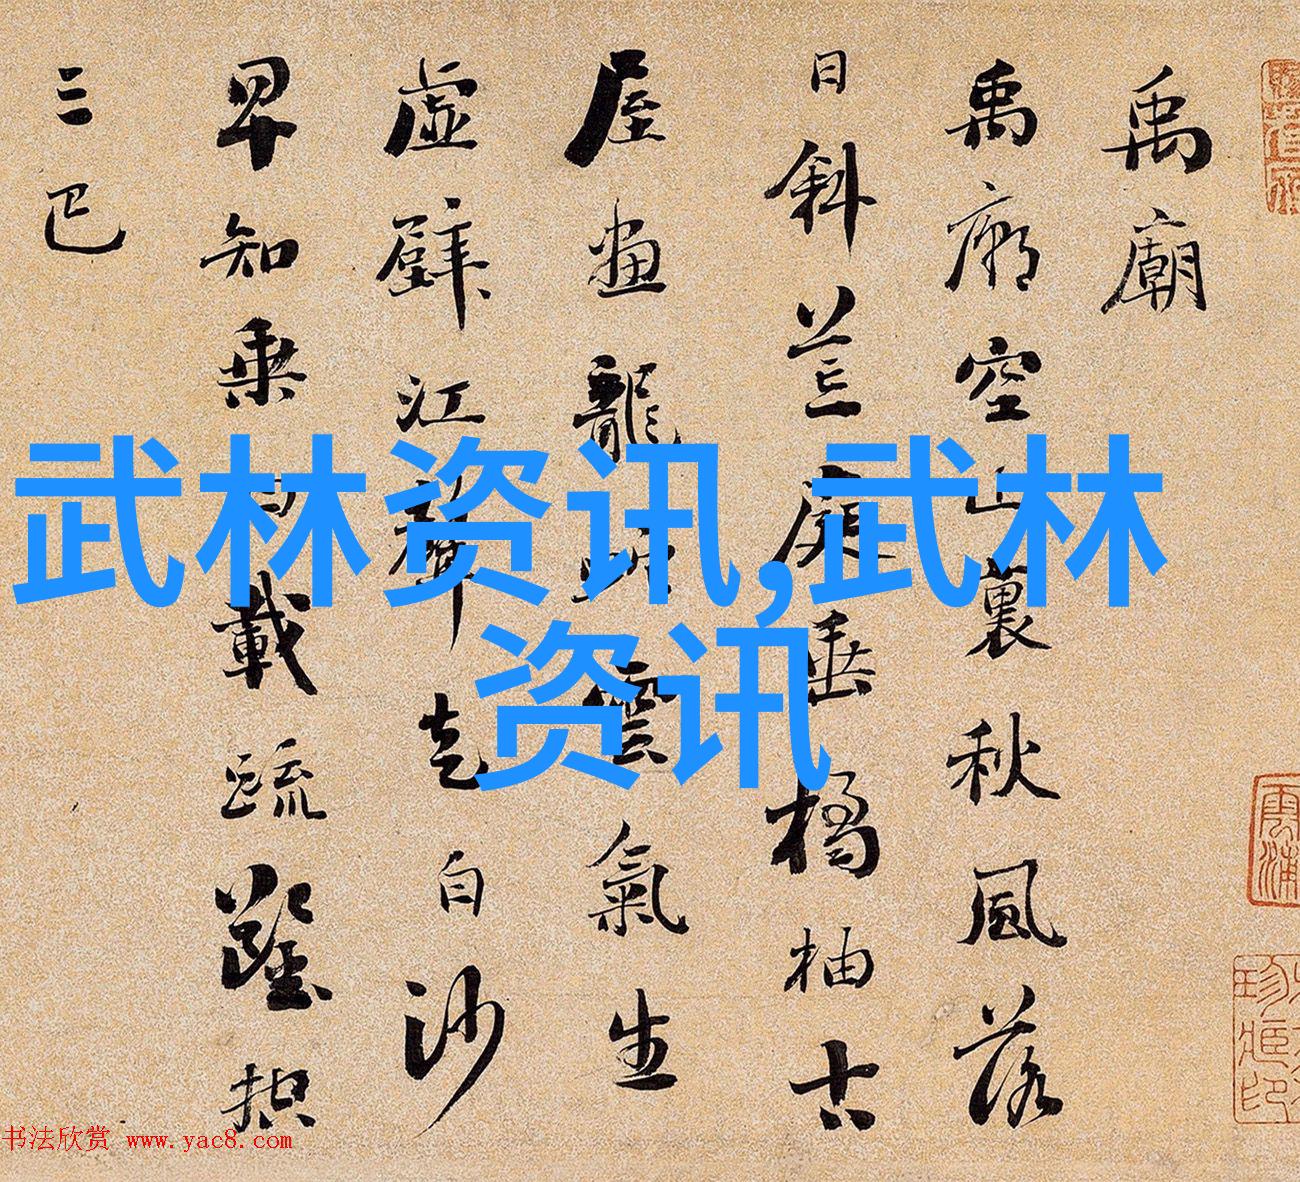 禹廟
禹廟空山裏秋風落
日斜荒庭垂橘柚古
屋畫龍蛇雲氣生
虛壁江聲走白沙
早知乘四載疏鑿控
三巴
武林资讯,武林
资讯
书法欣赏 www.yac8.com